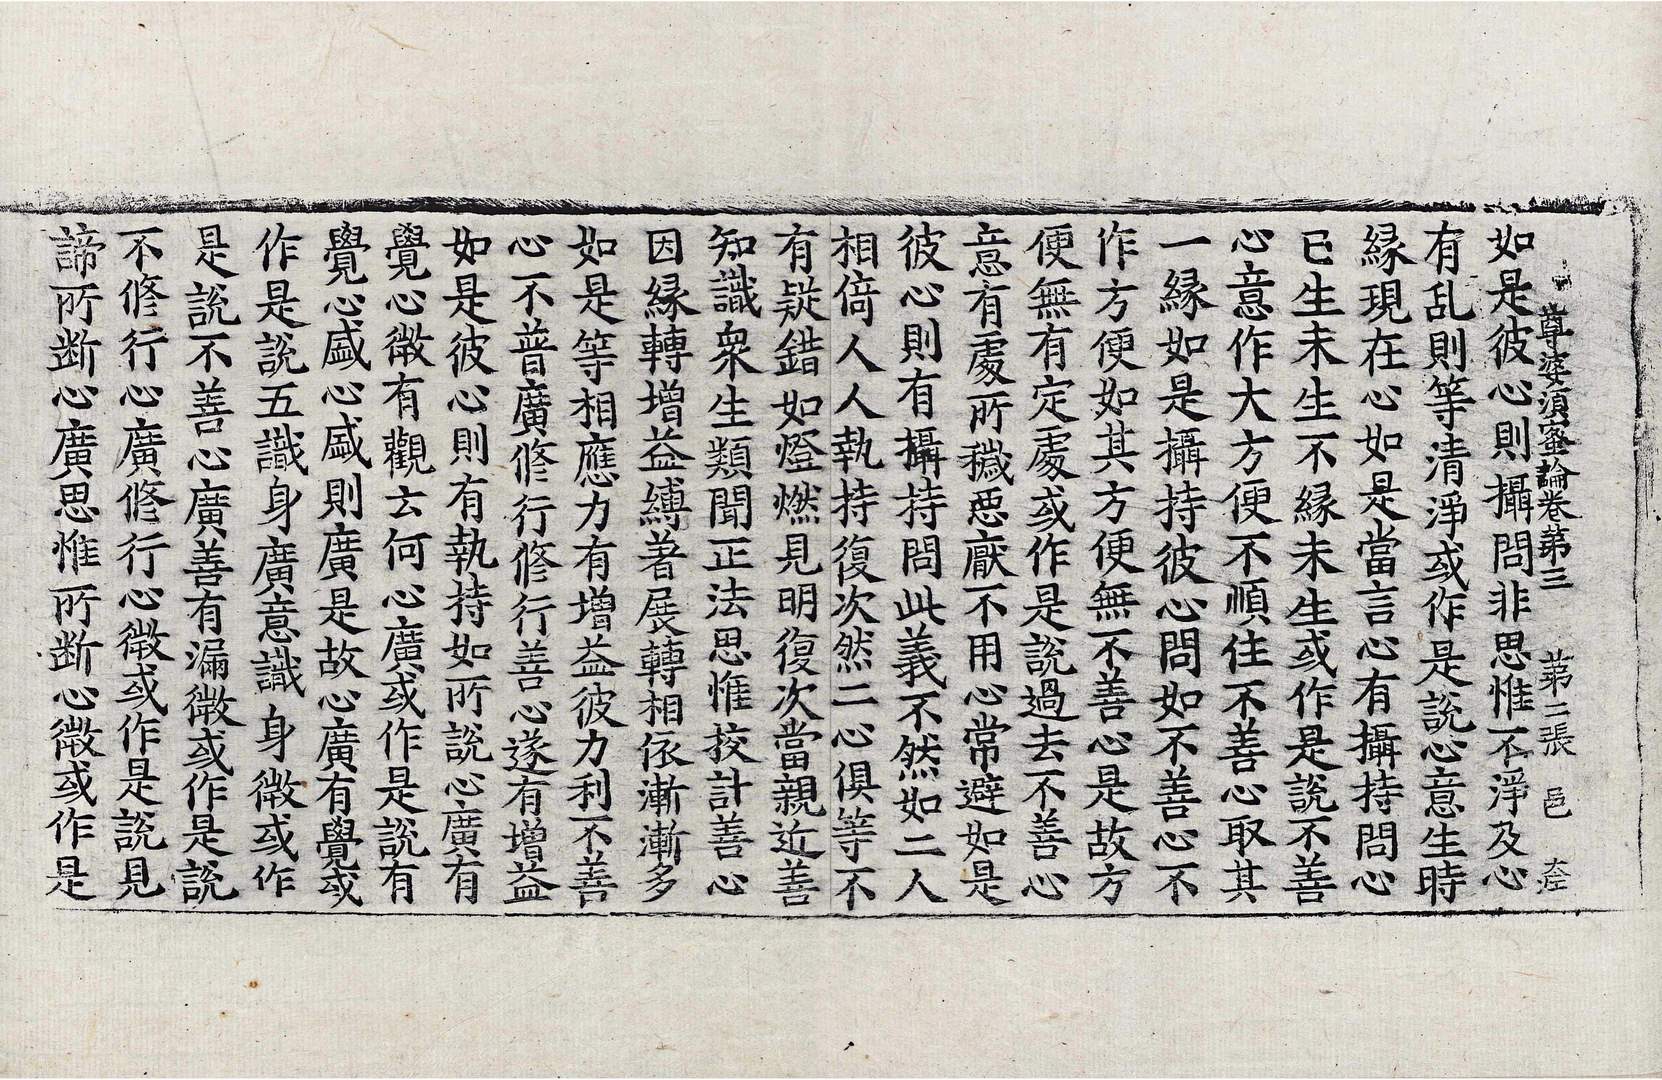 尊婆須蜜論卷第三 第二張 邑
如是彼心則攝問非思惟不淨及心
有乱則等清淨或作是說心意生時
緣現在心如是當言心有攝持問心
已生未生不緣未生或作是說不善
心意作大方便不順住不善心取其
一緣如是攝持彼心問如不善心不
作方便如其方便無不善心是故方
便無有定處或作是說過去不善心
意有處所穢惡厭不用心常避如是
彼心則有攝持問此義不然如二人
相倚人人執持復次然二心俱等不
有疑錯如燈燃見明復次當親近善
知識衆生類聞正法思惟挍計善心
因緣轉增益縛著展轉相依漸漸多
如是等相應力有增益彼力利不善
心不普廣修行修行善心遂有增益
如是彼心則有執持如所說心廣有
覺心微有觀云何心廣或作是說有
覺心盛心盛則廣是故心廣有覺或
作是說五識身廣意識身微或作
是說不善心廣善有漏微或作是說
不修行心廣修行心微或作是說見
諦所斷心廣思惟所斷心微或作是